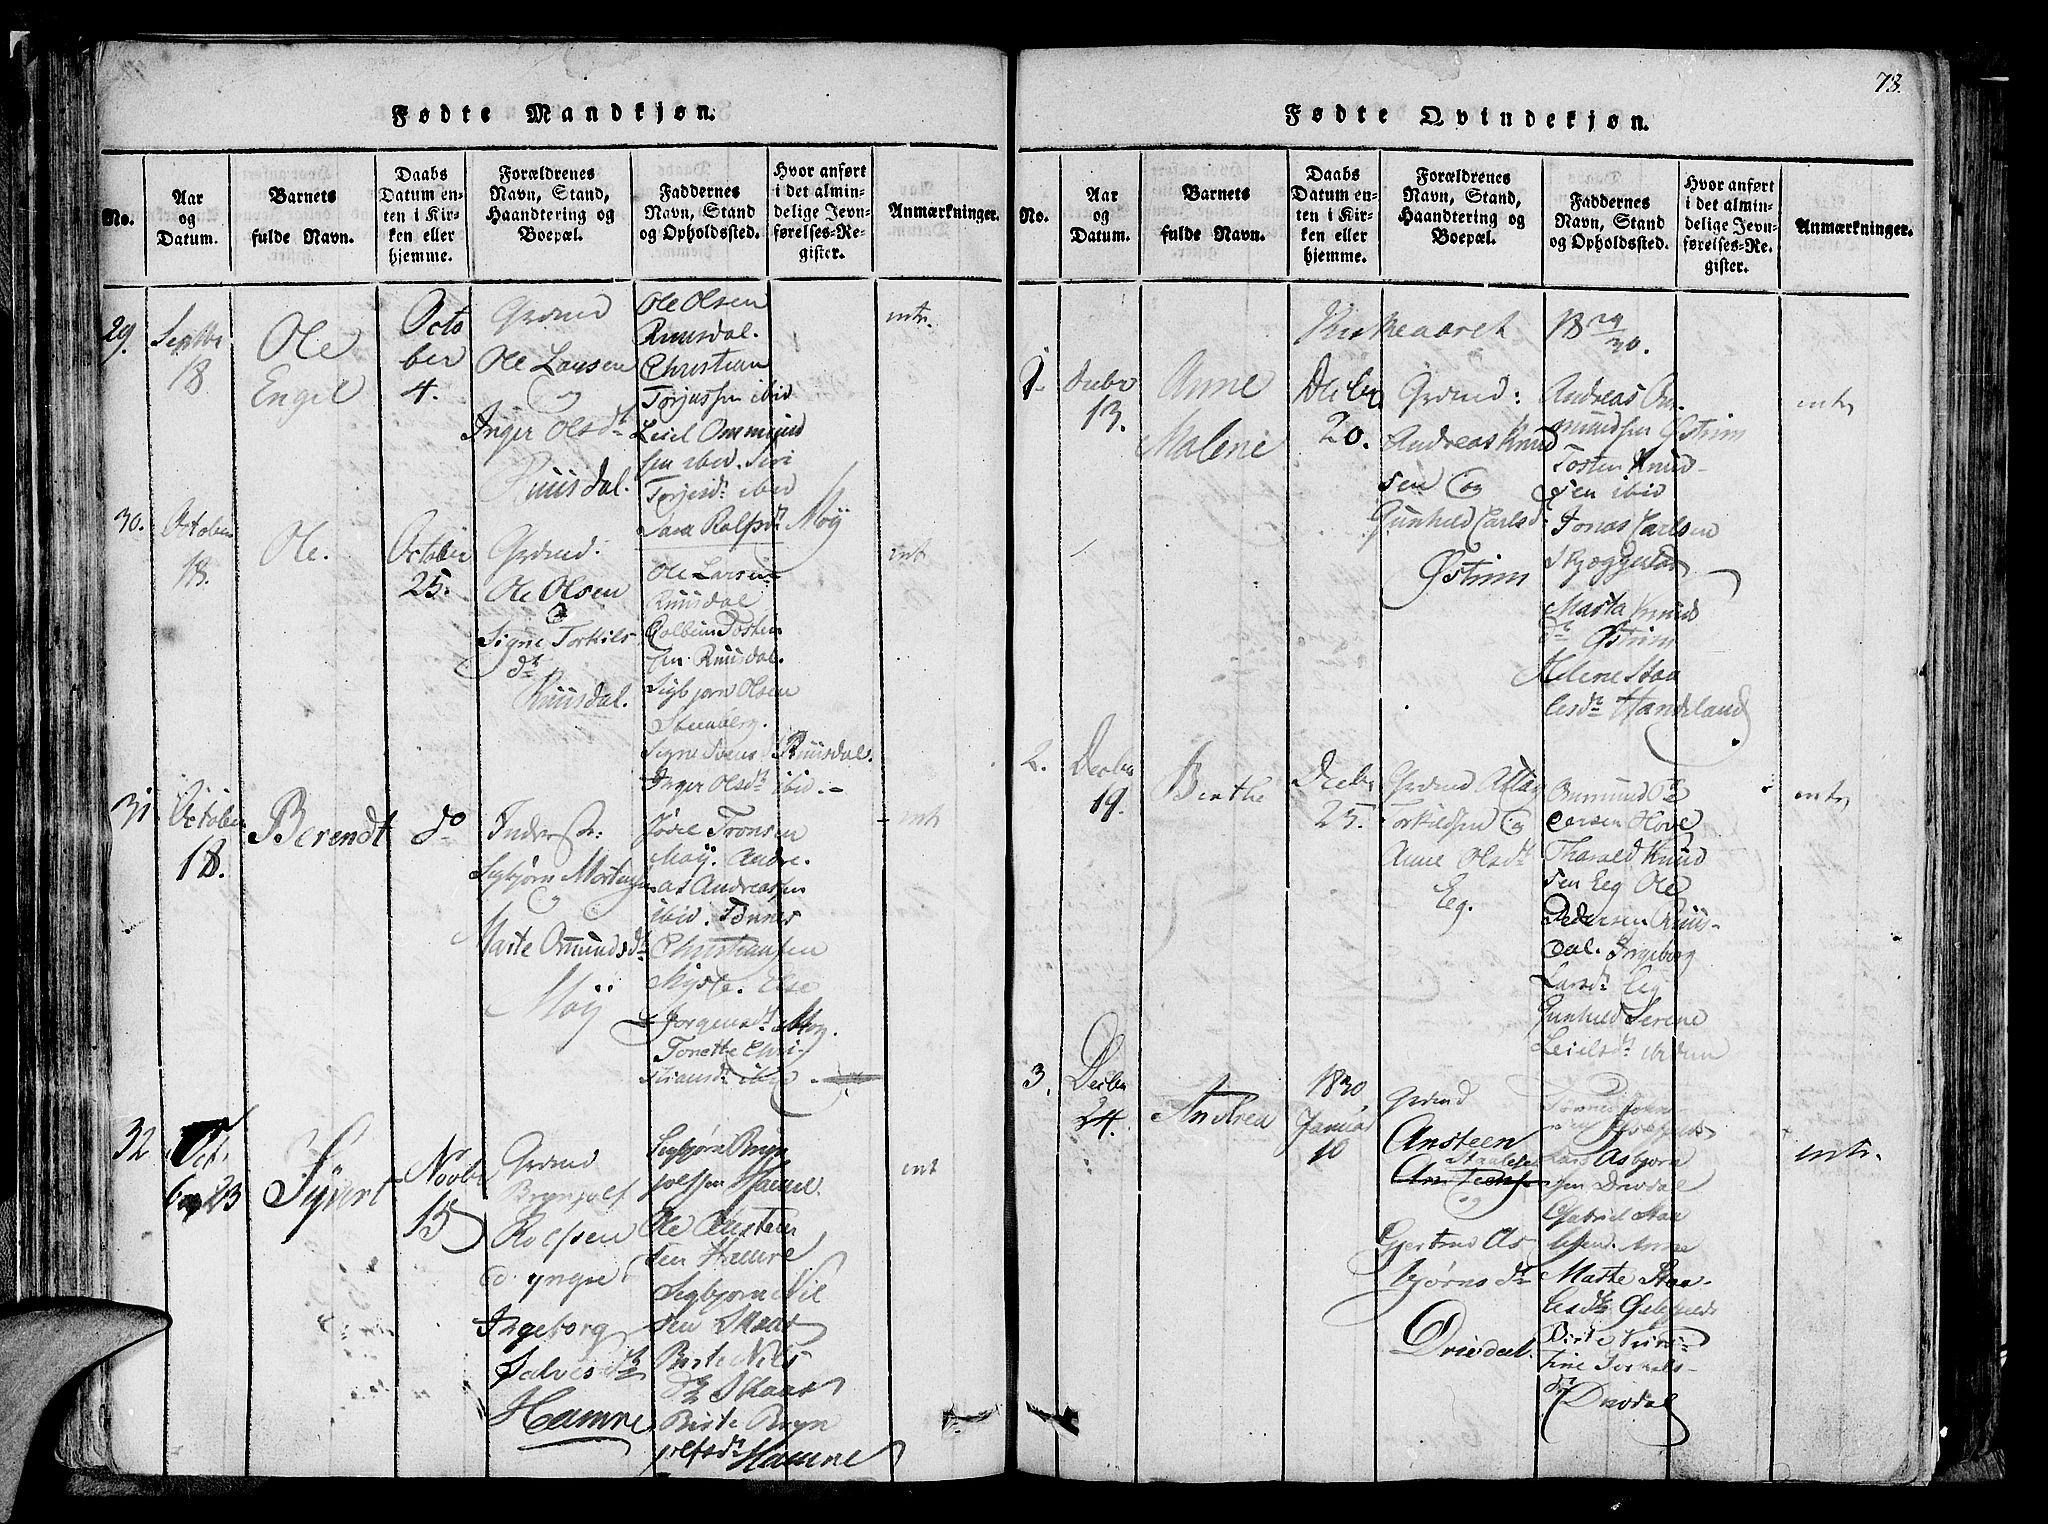 Fødte Mandkjøn.
No.
Aar
og
Datum.
Barnets
fulde Navn.
Daabs
Datum en-
ten i Kir-
ken eller
hjemme.
Forældrenes
Navn, Stand,
Haandtering og
Boepæl.
Faddernes
Navn, Stand
og Opholdssted.
Hvor anført
i det almin-
delige Jevn-
førelses-Re-
gister.
Anmærkninger.
29.
Septbr
18
Ole
Engel
Octo
ber
4.
Grdmd
Ole Larsen
og
Inger Olsdtr
Ruusdal.
Ole Olsen
Ruusdal.
Christian
Torjussen ibid
Leiel Ommund
sen ibid. Siri
Torjesdr ibid
Sara Rolfsdtr Moÿ
intr.
30.
October
18.
Ole.
October
25.
Grdmd.
Ole Olsen
&
Signe Torkils
dtr
Ruusdal.
Ole Larsen
Ruusdal
Colbein Tosten
sen Ruusdal.
Sigbjørn Olsen
Steenberg.
Signe Svensd Ruusdal.
Inger Olsdtr ibid.
int
31
October
18.
Berendt
do
Inderstr:
Sigbjørn Mortensen
og
Marte Omundsdtr
Moÿ
Jødel Tronsen
Moÿ. Andre-
as Andreassen
ibid. Tønnes
Christiansen
Nyste. Else
Jørgensdtr Moÿ.
Tonette Chri-
stiansdtr ibid
int
32
Octo
ber 23
Sÿvert
Novbr
15
Grdmd
Brynjolf
Rolfsen
d. yngre
Ingeborg
Salvesdtr
Hamre
Sigbjørn Bryn
jolfsen Hamre.
Ole Aansten
sen Hamre
Sigbjørn Nil
sen Skaar
Birte Nils
dtr Skaar
Birte Bryn
jolfsdtr Hamre
int
73.
Fødte Qvindekjøn.
No.
Aar
og
Datum.
Barnets
fulde Navn.
Daabs
Datum en-
ten i Kir-
ken eller
hjemme.
Forældrenes
Navn, Stand,
Haandtering og
Boepæl.
Faddernes
Navn, Stand
og Opholdssted.
Hvor anført
i det almin-
delige Jevn-
førelses-Re-
gister.
Anmærkninger.
Kirkeaaret 18 29/30.
1.
Decbr
13.
Anne
Malene
Decbr
20.
Grdmd:
Andreas Knud
sen og
Gunhild Carlsd
Østrim
Andreas Om-
mundsen Østrim
Tosten Knud-
sen ibid
Jonas Carlsen
Skjeggestad
Marta Knuds
dtr Østrim
Helene Staa
lesdtr Handeland
intr
2.
Decbr
19.
Birthe
Decbr
25.
Grdmd Aslag
Torkildsen og
Anne Olsdtr
Eeg.
Ommund Pe
dersen Hove
Tharald Knud
sen Eeg Ole
Pedersen Ruus-
dal. Ingeborg
Larsdtr Eeg
Gunhild Serene
Leielsdtr ibidem
intr
3.
Decbr
24.
Andrea
1830,
Januar
10
Grdmd
Ansteen
Staalesen
og
Gjertrud As
bjørnsdtr
Driedal.
Lars Asbjørn
sen Dredal
Gabriel Staa
lesen. Anne
Marte Staa-
lesdtr
Birte Kirs-
tine Torkels-
dtr Dredal
intr.